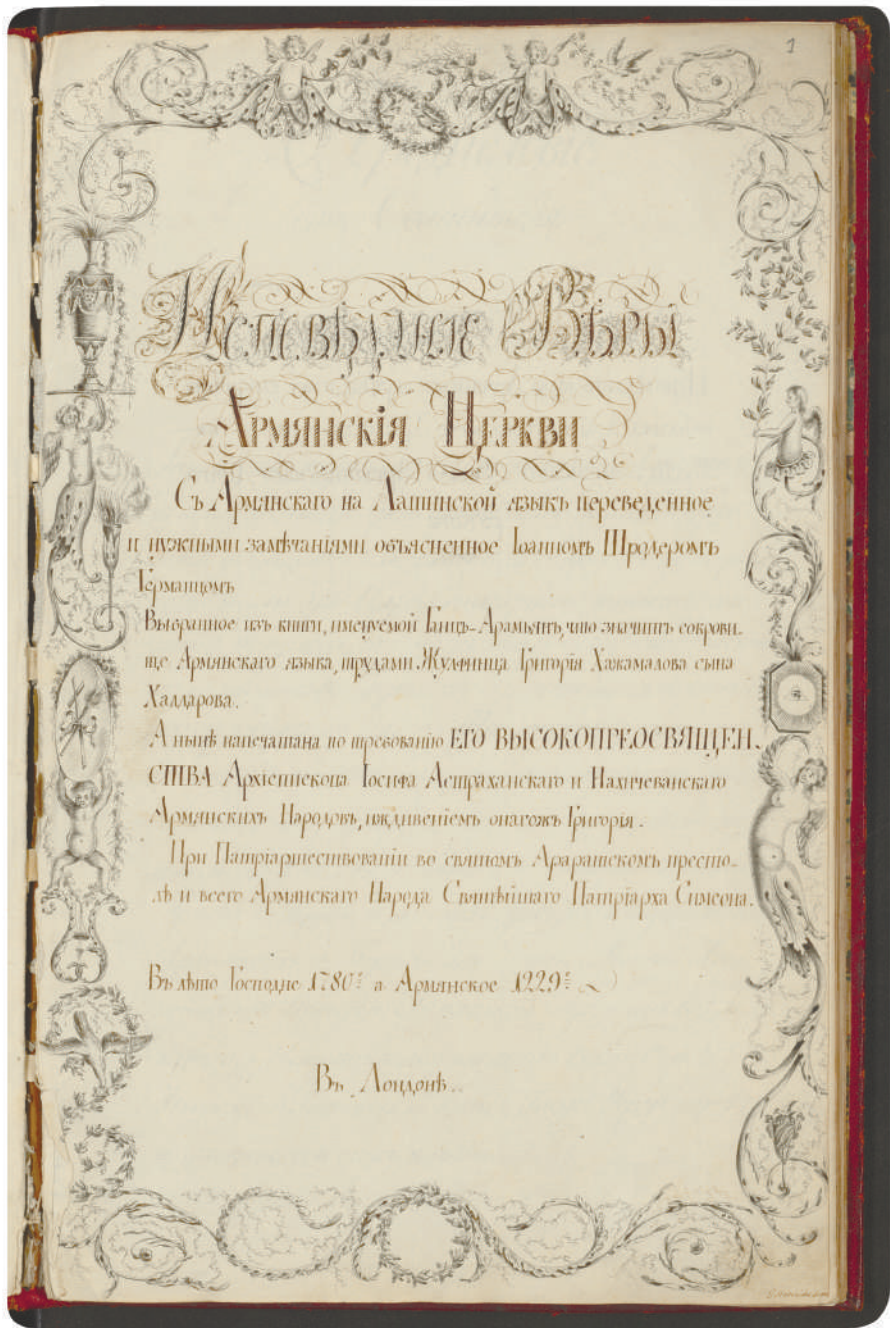 1
Исповѣданіе Вѣры
Армянскія Церкви
Съ Армянскаго на Латинской языкъ переведенное
и нужными замѣчаніями объясненное Іоанномъ Шредеромъ
Германцомъ
Выбранное изъ книги, имянуемой Ганцъ-Арамъянъ, что значитъ сокрови-
ще Армянскаго языка, трудами Жулфинца Григорія Хажамалова сына
Халдарова.
А нынѣ напечатана по требованію ЕГО ВЫСОКОПРЕОСВЯЩЕН-
СТВА Архіепископа Іосифа Астраханскаго и Нахичеванскаго
Армянскихъ Народовъ, иждивеніемъ онагожъ Григорія.
При Патріаршествованіи во святомъ Араратскомъ престо-
лѣ и всего Армянскаго Народа Святѣйшаго Патріарха Симеона.
Въ лѣто Господне 1780: а Армянское 1229:
Въ Лондонѣ..